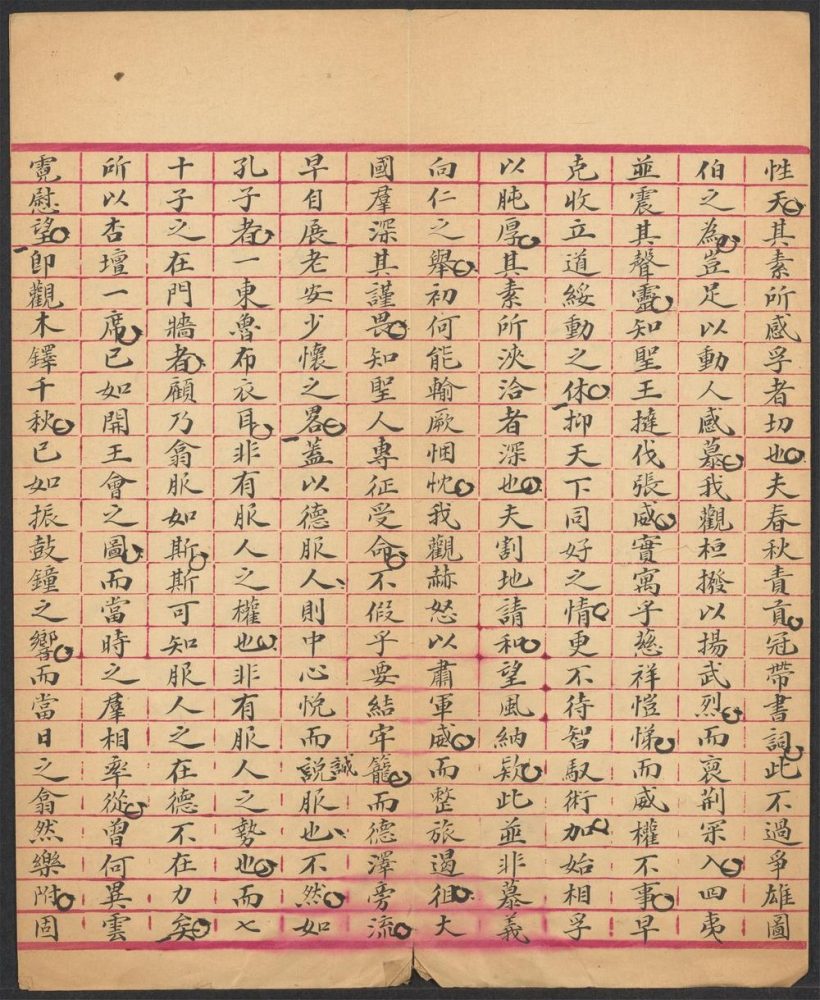 性天其素所感孚者切也夫春秋責貢冠帶書詞此不過爭雄圖
伯之為豈足以動人感慕我觀桓撥以揚武烈而裒荊罙入四夷
並震其聲靈知聖王撻伐張威實寓乎慈祥愷悌而威權不事早
克收立道綏動之休抑天下同好之情更不待智馭術加始相孚
以肫厚其素所浹洽者深也夫割地請和望風納欵此並非慕義
向仁之舉初何能輸厥悃忱我觀赫怒以肅軍威而整旅遏徂大
國羣深其謹畏知聖人專征受命不假乎要結牢籠而德澤旁流
早自展老安少懷之畧蓋以德服人則中心悅而説誠服也不然如
孔子者一東魯布衣耳非有服人之權也非有服人之勢也而七
十子之在門牆者顧乃翕服如斯斯可知服人之在德不在力矣
所以杏壇一席已如開王會之圖而當時之羣相率從曾何異雲
霓慰望即觀木鐸千秋已如振鼓鐘之響而當日之翕然樂附固